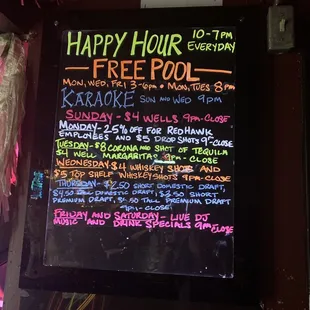 HAPPY HOUR 10-7PM EVERYDAY
FREE POOL
MON, WED, FRI 3-6PM • MON, TUES 8PM
KARAOKE SUN AND WED 9PM
SUNDAY - $4 WELLS 9PM-CLOSE
MONDAY - 25% OFF FOR REDHAWK
EMPLOYEES AND $5 SHOTS 9-CLOSE
TUESDAY - $8 CORONA AND SHOT OF TEQUILA
$4 WELL MARGARITAS 9PM - CLOSE
WEDNESDAY $4 WHISKEY SHOTS AND
$5 TOP SHELF WHISKEY SHOTS 9PM-CLOSE
THURSDAY - $2.50 SHORT DOMESTIC DRAFT,
$4.50 TALL DOMESTIC DRAFT, $3.50 SHORT
PREMIUM DRAFT, TALL PREMIUM DRAFT
9PM-CLOSE
FRIDAY AND SATURDAY - LIVE DJ
MUSIC AND DRINK SPECIALS 9PM-CLOSE